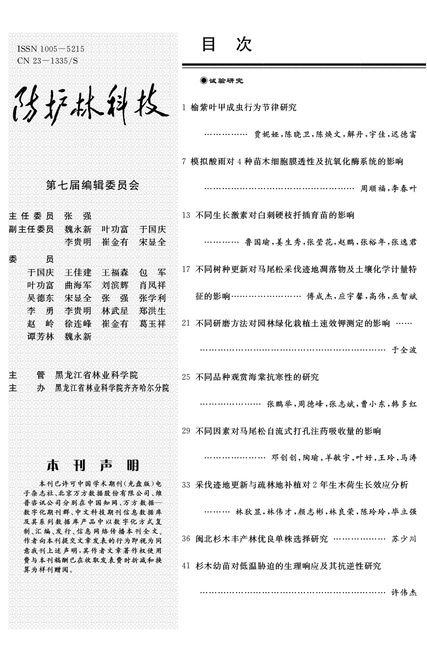 ISSN 1005-5215
CN 23-1335/S
防护林科技
第七届编辑委员会
主任委员 张 强
副主任委员 魏永新 叶功富 于国庆
李贵明 崔金有 宋显全
委 员
于国庆 王佳建 王福森 包 军
叶功富 曲海军 刘滨辉 肖凤祥
吴德东 宋显全 张 强 张学利
李 勇 李贵明 林武星 郑洪生
赵 岭 徐连峰 崔金有 葛玉祥
谭芳林 魏永新
主 管 黑龙江省林业科学院
主 办 黑龙江省林业科学院齐齐哈尔分院
本刊声明
本刊已许可中国学术期刊(光盘版)电
子杂志社、北京万方数据股份有限公司、维
普咨讯公司分别在中国知网、万方数据—
数字化期刊群、中文科技期刊信息数据库
及其系列数据库产品中以数字化方式复
制、汇编、发行、信息网络传播本刊全文。
作者向本刊提交文章发表的行为即视为同
意我刊上述声明,其作者文章著作权使用
费与本刊稿酬已在收取发表费时折减和换
算为样刊赠阅。
目 次
◉试验研究
1 榆紫叶甲成虫行为节律研究
…………… 贾妮娅,陈晓卫,陈焕文,解丹,宇佳,迟德富
7 模拟酸雨对4种苗木细胞膜透性及抗氧化酶系统的影响
…………………………………………… 周顺福,李春叶
13 不同生长激素对白刺硬枝扦插育苗的影响
………… 鲁国瑜,姜生秀,张莹花,赵鹏,张裕年,张逸君
17 不同树种更新对马尾松采伐迹地凋落物及土壤化学计量特
征的影响…………………… 傅成杰,应宇馨,高伟,巫智斌
21 不同研磨方法对园林绿化栽植土速效钾测定的影响 ……
……………………………………………………… 于全波
25 不同品种观赏海棠抗寒性的研究
……………………… 张鹏举,周德峰,张志斌,曹小东,韩多红
29 不同因素对马尾松自流式打孔注药吸收量的影响
………………… 邓创创,陶瑜,羊敏宇,叶好,王玲,马涛
33 采伐迹地更新与疏林地补植对2年生木荷生长效应分析
……… 林狄显,林伟才,颜志彬,林良荣,陈玲玲,毕立强
36 闽北杉木丰产林优良单株选择研究 ……………… 苏少川
41 杉木幼苗对低温胁迫的生理响应及其抗逆性研究
……………………………………………………… 许伟杰